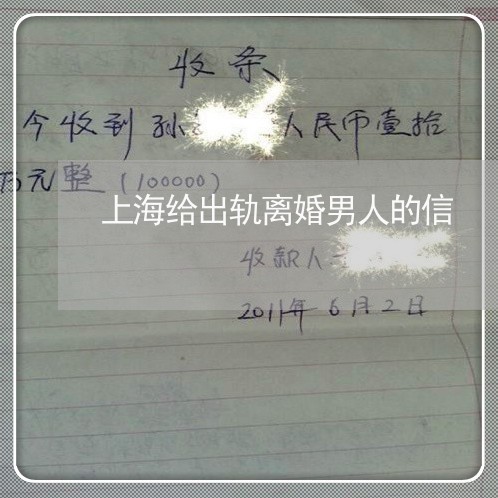 收条
今收到孙 人民币壹拾
万元整（100000）
上海给出轨离婚男人的信
收款人
2011年6月2日